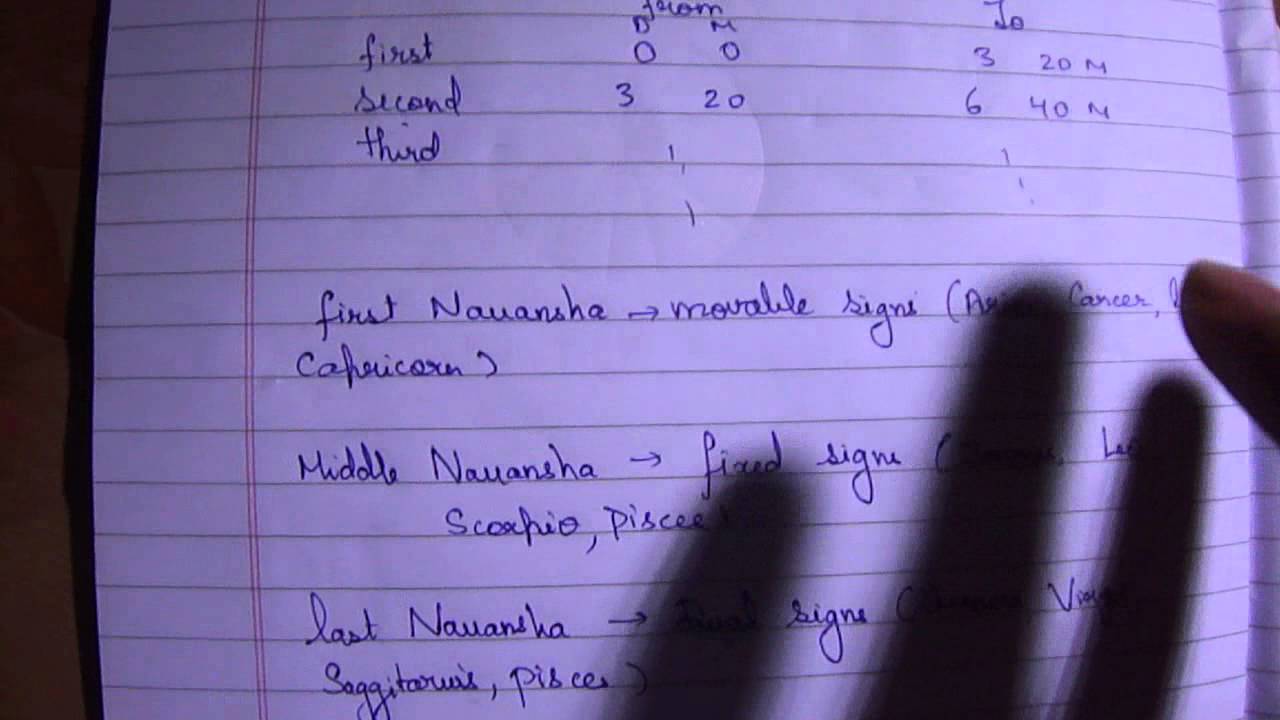 from To
D M
first 0 0 3 20 M
second 3 20 6 40 M
third
first Navansha → movable signs ( Cancer,
Capricorn)
Middle Navansha → fixed signs (
Scorpio, Pisces
last Navansha → signs (
Saggitarius, pisces)